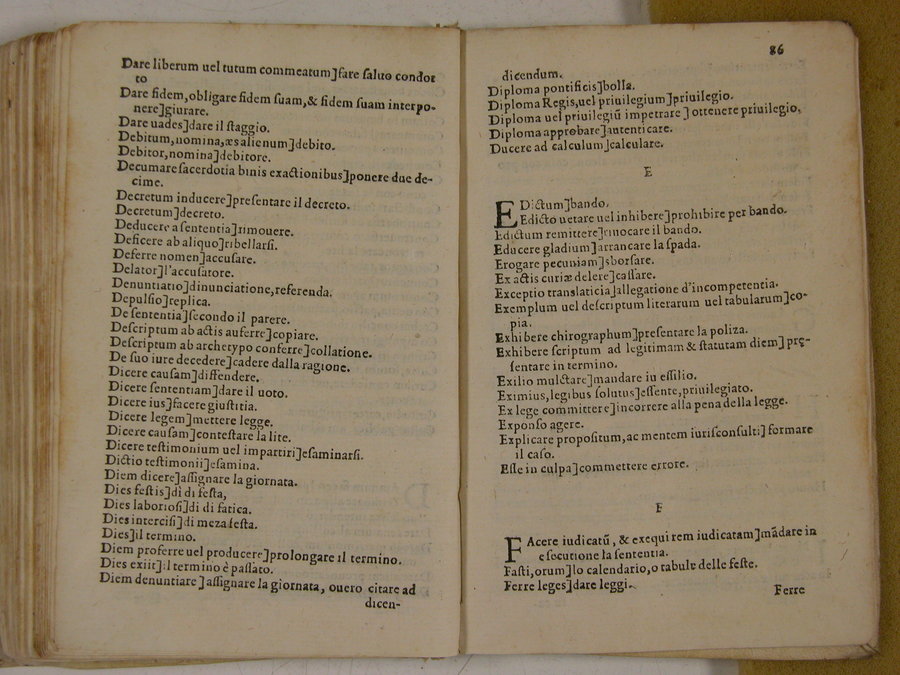 Dare liberum uel tutum commeatum]fare saluo condot
to
Dare fidem,obligare fidem suam,& fidem suam interpo-
nere]giurare.
Dare uades]dare il staggio.
Debitum,nomina,æs alienum]debito.
Debitor,nomina]debitore.
Decumare sacerdotia binis exactionibus]ponere due de-
cime.
Decretum inducere]presentare il decreto.
Decretum]decreto.
Deducere a sententia]rimouere.
Deficere ab aliquo]ribellarsi.
Deferre nomen]accusare.
Delator]l'accusatore.
Denuntiatio]dinunciatione,referenda.
Depulsio]replica.
De sententia]secondo il parere.
Descriptum ab actis auferre]copiare.
Descriptum ab archetypo conferre]collatione.
De suo iure decedere]cadere dalla ragione.
Dicere causam]diffendere.
Dicere sententiam]dare il uoto.
Dicere ius]facere giustitia.
Dicere legem]mettere legge.
Dicere causam]contestare la lite.
Dicere testimonium uel impartiri]esaminarsi.
Dictio testimonii]esamina.
Diem dicere]assignare la giornata.
Dies festis]dì di festa,
Dies laboriosi]di di fatica.
Dies intercisi]di meza festa.
Dies]il termino.
Diem proferre uel producere]prolongare il termino.
Dies exiit]il termino è passato.
Diem denuntiare]assignare la giornata, ouero citare ad
dicen-
86
dicendum.
Diploma pontificis]bolla.
Diploma Regis,uel priuilegium]priuilegio.
Diploma uel priuilegiũ impetrare] ottenere priuilegio,
Diploma approbare]autenticare.
Ducere ad calculum]calculare.
E
EDictum]bando.
Edicto uetare uel inhibere]prohibire per bando.
Edictum remittere]riuocare il bando.
Educere gladium]arrancare la spada.
Erogare pecuniam]sborsare.
Ex actis curiæ delere]cassare.
Exceptio translaticia]allegatione d'incompetentia.
Exemplum uel descriptum literarum uel tabularum]co-
pia.
Exhibere chirographum]presentare la poliza.
Exhibere scriptum ad legitimam & statutam diem] prę-
sentare in termino.
Exilio mulctare]mandare iu essilio.
Eximius,legibus solutus]essente,priuilegiato.
Ex lege committere]incorrere alla pena della legge.
Exponso agere.
Explicare propositum,ac mentem iurisconsulti] formare
il caso.
Esse in culpa]commettere errore.
F
FAcere iudicatũ, & exequi rem iudicatam]mãdare in
esecutione la sententia.
Fasti,orum]lo calendario,o tabule delle feste.
Ferre leges]dare leggi.
Ferre